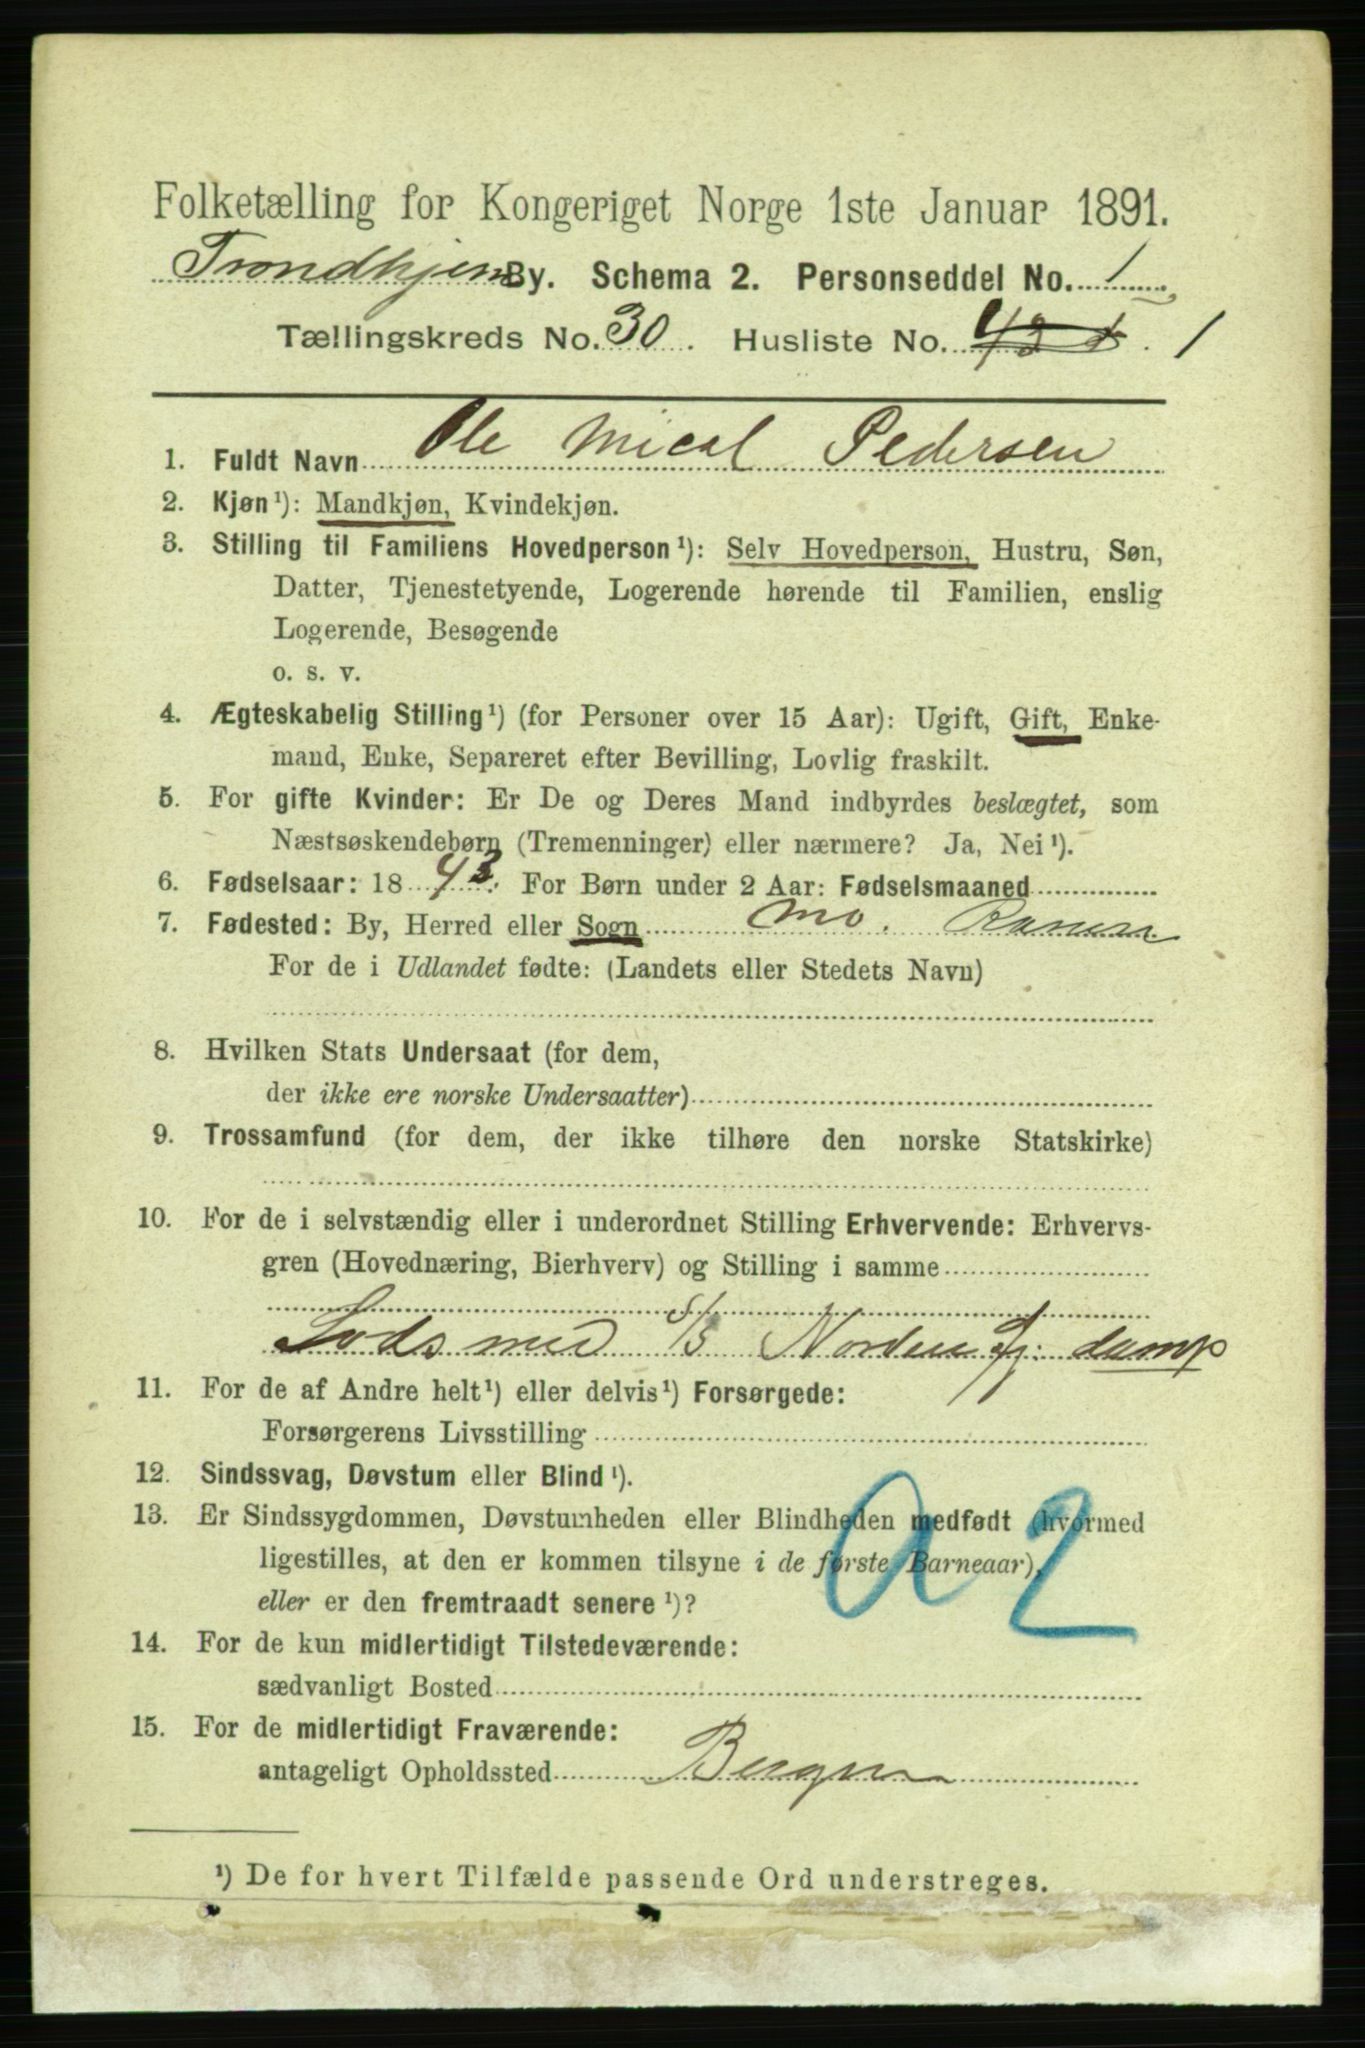 Folketælling for Kongeriget Norge 1ste Januar 1891.
Trondhjem By. Schema 2. Personseddel No. 1
Tællingskreds No. 30. Husliste No. 1
1. Fuldt Navn Ole Mical Pedersen
2. Kjøn¹): Mandkjøn, Kvindekjøn.
3. Stilling til Familiens Hovedperson¹): Selv Hovedperson, Hustru, Søn,
Datter, Tjenestetyende, Logerende hørende til Familien, enslig
Logerende, Besøgende
o. s. v.
4. Ægteskabelig Stilling¹) (for Personer over 15 Aar): Ugift, Gift, Enke-
mand, Enke, Separeret efter Bevilling, Lovlig fraskilt.
5. For gifte Kvinder: Er De og Deres Mand indbyrdes beslægtet, som
Næstsøskendebørn (Tremenninger) eller nærmere? Ja, Nei¹).
6. Fødselsaar: 1843. For Børn under 2 Aar: Fødselsmaaned
7. Fødested: By, Herred eller Sogn Mo. Ranen
For de i Udlandet fødte: (Landets eller Stedets Navn)
8. Hvilken Stats Undersaat (for dem,
der ikke ere norske Undersaatter)
9. Trossamfund (for dem, der ikke tilhøre den norske Statskirke)
10. For de i selvstændig eller i underordnet Stilling Erhvervende: Erhvervs-
gren (Hovednæring, Bierhverv) og Stilling i samme
Lods med S/S Nordenfj: damp
11. For de af Andre helt¹) eller delvis¹) Forsørgede:
Forsørgerens Livsstilling
12. Sindssvag, Døvstum eller Blind¹).
13. Er Sindssygdommen, Døvstumheden eller Blindheden medfødt (hvormed
ligestilles, at den er kommen tilsyne i de første Barneaar),
eller er den fremtraadt senere¹)?
a 2
14. For de kun midlertidigt Tilstedeværende:
sædvanligt Bosted
15. For de midlertidigt Fraværende:
antageligt Opholdssted Bergen
¹) De for hvert Tilfælde passende Ord understreges.